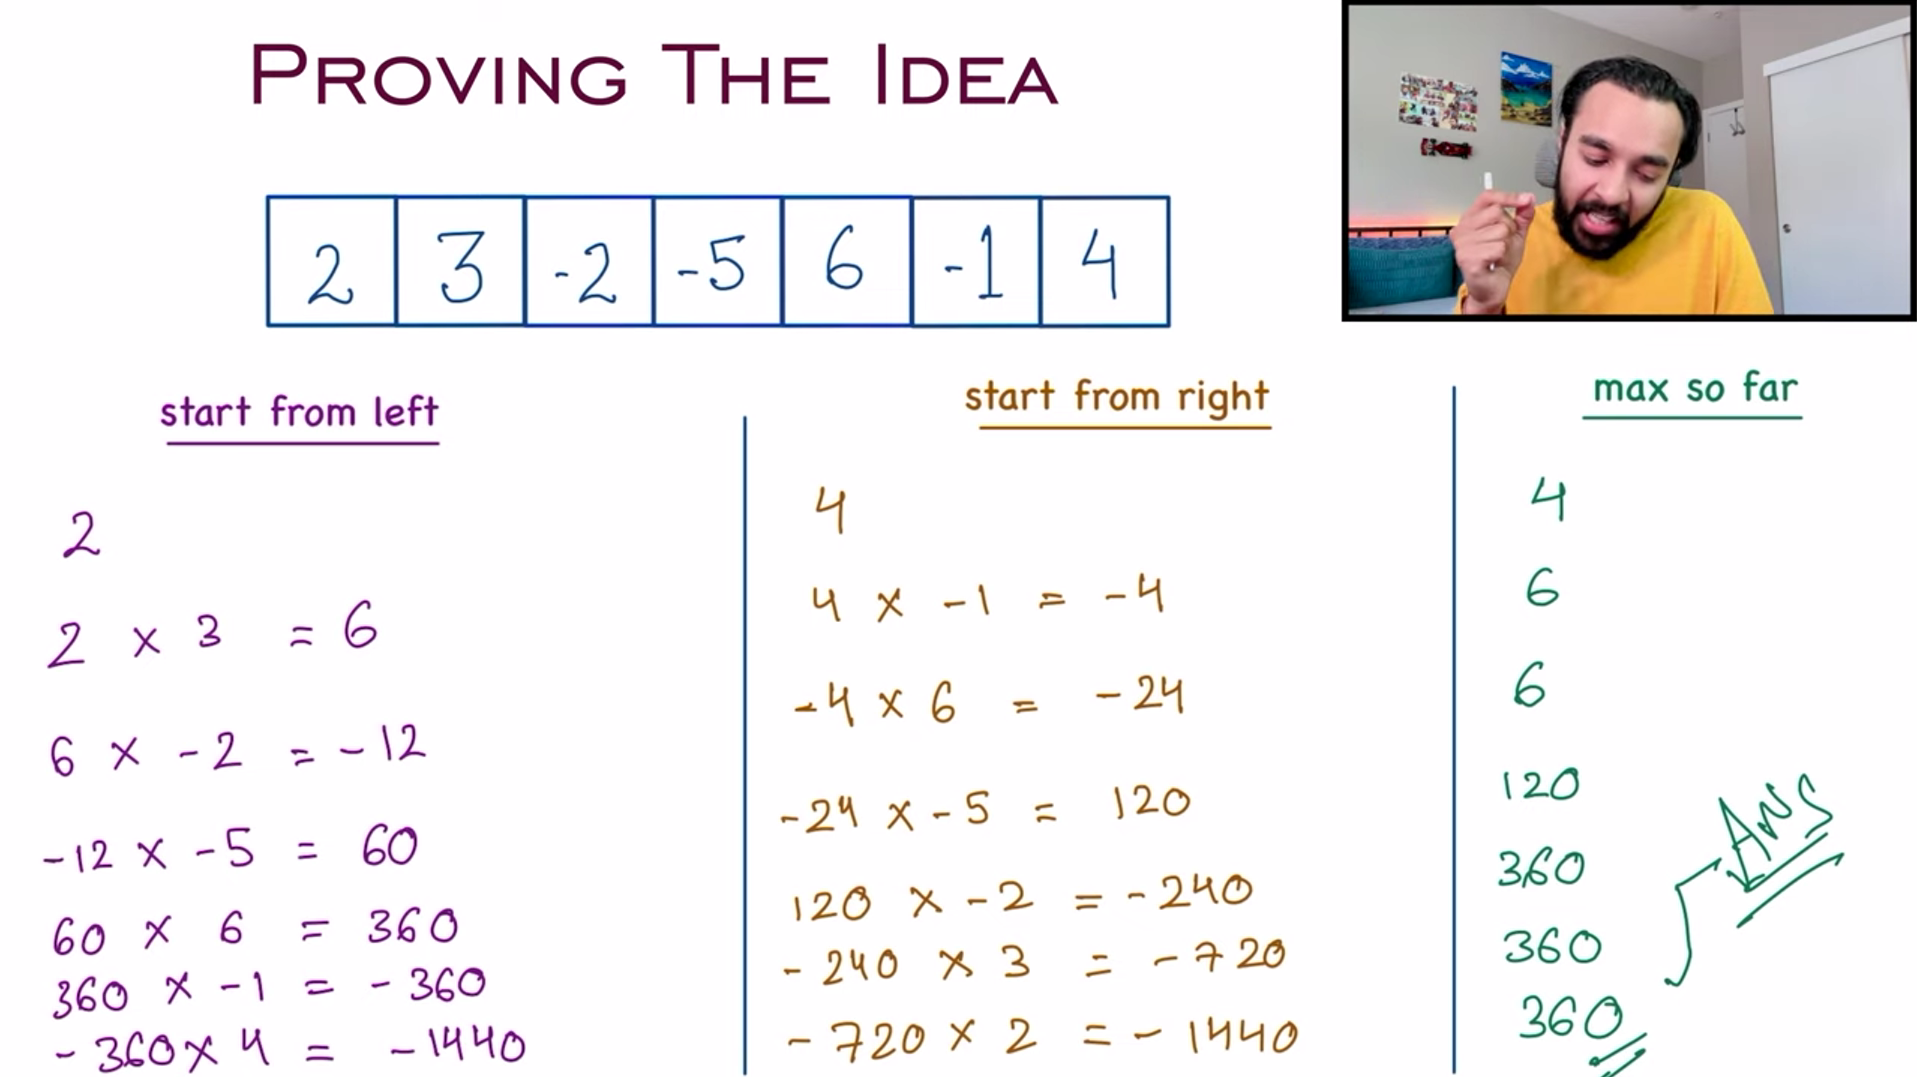 PROVING THE IDEA
2 3 -2 -5 6 -1 4
start from left
2
2 x 3 = 6
6 x -2 = -12
-12 x -5 = 60
60 x 6 = 360
360 x -1 = -360
-360 x 4 = -1440
start from right
4
4 x -1 = -4
-4 x 6 = -24
-24 x -5 = 120
120 x -2 = -240
-240 x 3 = -720
-720 x 2 = -1440
max so far
4
6
6
120
360
360
360
Ans